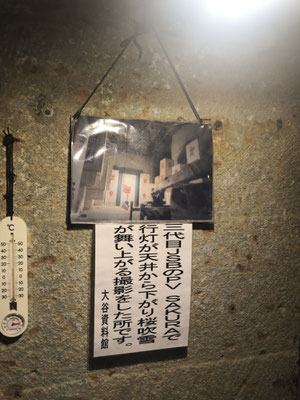 三代目JSBのPV SAKURAで
行灯が天井から下がり桜吹雪
が舞い上がる撮影をした所です。
大谷資料館
℃